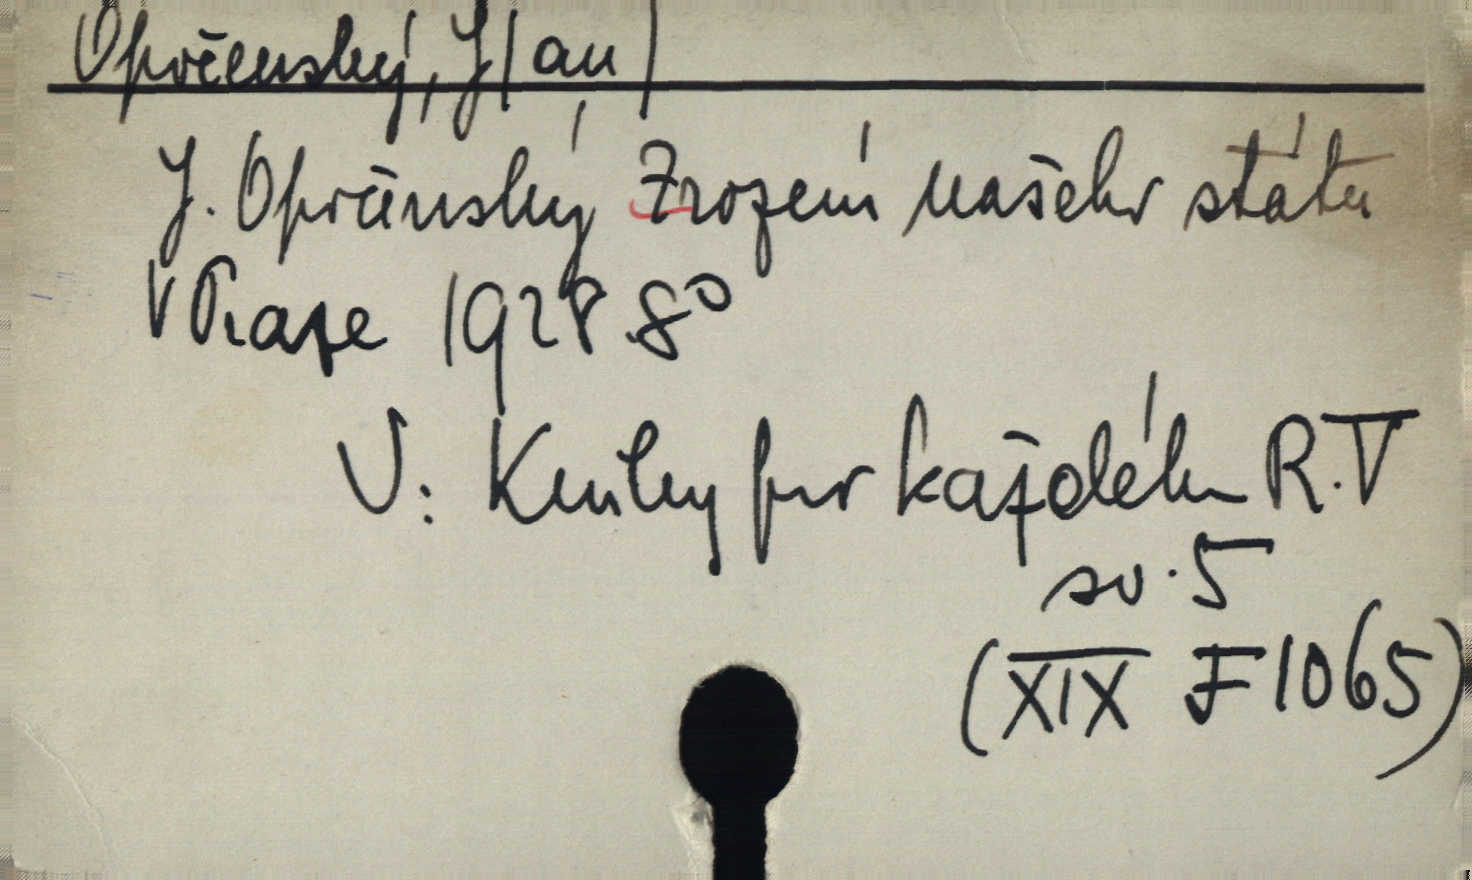 Opočenský, J/an/
J. Opočenský Zrození našeho státu
V Praze 1928 8°
V: Knihy pro každého R.V
sv. 5
(XIX F 1065)